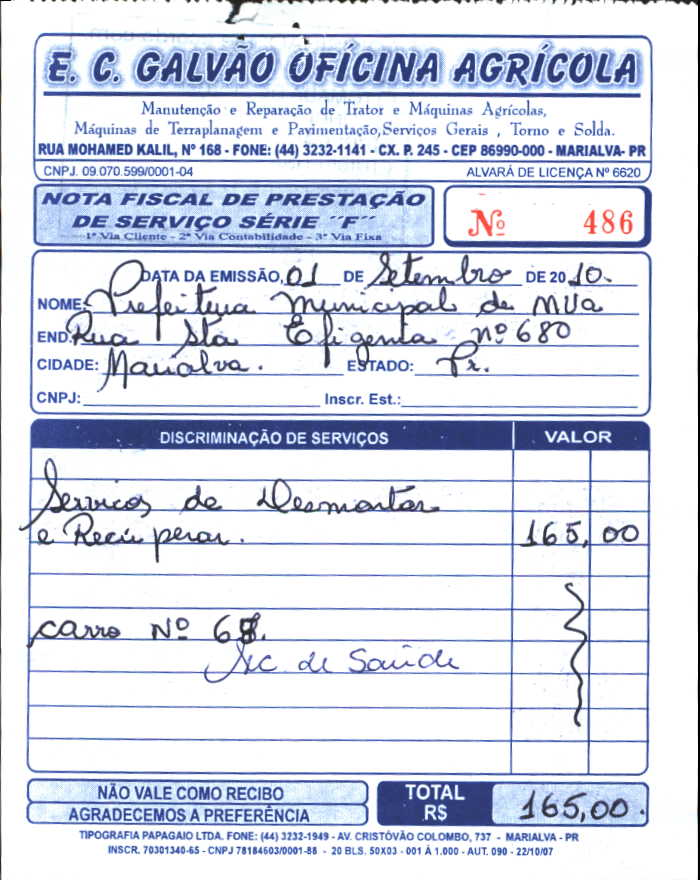 E. C. GALVÃO OFÍCINA AGRÍCOLA
Manutenção e Reparação de Trator e Máquinas Agrícolas,
Máquinas de Terraplanagem e Pavimentação,Serviços Gerais , Torno e Solda.
RUA MOHAMED KALIL, Nº 168 - FONE: (44) 3232-1141 - CX. P. 245 - CEP 86990-000 - MARIALVA- PR
CNPJ. 09.070.599/0001-04 ALVARÁ DE LICENÇA Nº 6620
NOTA FISCAL DE PRESTAÇÃO
DE SERVIÇO SÉRIE ´´F´´
1ª Via Cliente - 2ª Via Contabilidade - 3ª Via Fixa
Nº 486
DATA DA EMISSÃO, 01 DE Setembro DE 2010.
NOME: Prefeitura Municipal de MVa
END. Rua Sta Efigenia nº 680
CIDADE: Marialva. ESTADO: Pr.
CNPJ: Inscr. Est.:
DISCRIMINAÇÃO DE SERVIÇOS VALOR
Serviços de Desmontar
e Recuperar. 165,00
carro Nº 6
Sec. de Saúde
NÃO VALE COMO RECIBO
AGRADECEMOS A PREFERÊNCIA
TOTAL
R$ 165,00.
TIPOGRAFIA PAPAGAIO LTDA. FONE: (44) 3232-1949 - AV. CRISTÓVÃO COLOMBO, 737 - MARIALVA - PR
INSCR. 70301340-65 - CNPJ 78184603/0001-86 - 20 BLS. 50X03 - 001 À 1.000 - AUT. 090 - 22/10/07